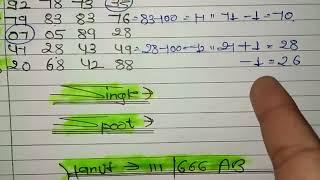 92 78 73 35
79 83 83 76 = 83-100 =
07 05 89 28
41 28 43 49 = 28-100 = + 1 = 28
20 68 42 88 - 1 = 26
Singl →
Spoot →
→ 111 / 666 AB